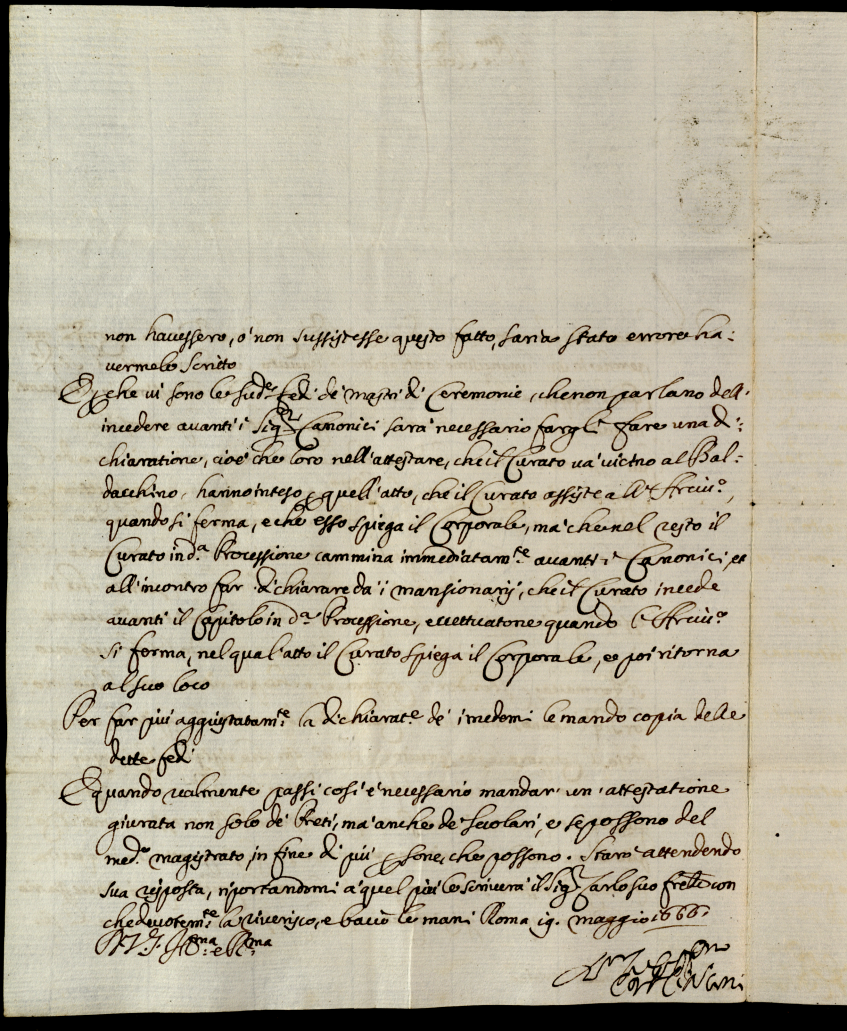 non havessero, ò non sussistesse questo fatto, saria stato errore ha:
vermelo scritto
E perche vi sono le sud.e fedi de mastri di Ceremonie, che non parlano dell'
incedere avanti i Sig.ri Canonici sarà necessario fargli fare una di:
chiaratione, cioè che loro nell'attestare, che il Curato và vicino al Bal:
dacchino, hanno inteso p quell'atto, che il Curato assiste all'Arciv.o,
quando si ferma, e che esso spiega il Corporale, mà che nel resto il
Curato in d.a Processione cammina immediatam.te avanti i Canonici, et
all'incontro far dichiarare da i mansionarij, che il Curato incede
avanti il Capitolo in d.a Processione, eccettuatone quando l'Arciv.o
si ferma, nel qual'atto il Curato spiega il Corporale, e poi ritorna
al suo loco
Per far più aggiustatam.te la dichiarat.e de i medemi le mando copia delle
dette fedi
E quando realmente passi così è necessario mandar un'attestatione
giurata non solo de Preti, mà anche de secolari, e se possono del
med.o magistrato, in fine di più psone, che possono. Starò attendendo
sua risposta, riportandomi a quel più le scriverà il Sig.r Carlo suo frello con
che devotam.te la riverisco, e bacio le mani Roma 19. maggio 1666.
D V.S. Ill.ma e R.ma